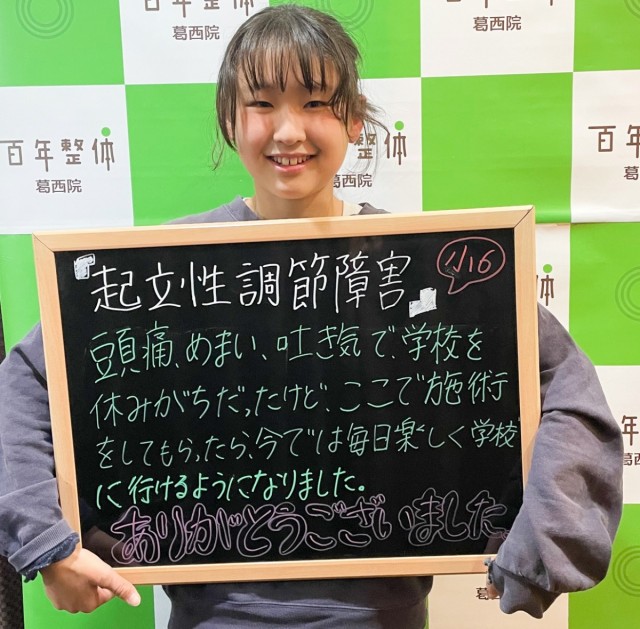 百年整体
葛西院
百年整体
葛西院
百年整体
葛西院
『起立性調節障害』
小6
頭痛、めまい、吐き気で、学校を
休みがちだったけど、ここで施術
をしてもらったら、今では毎日楽しく学校
に行けるようになりました。
ありがとうございました